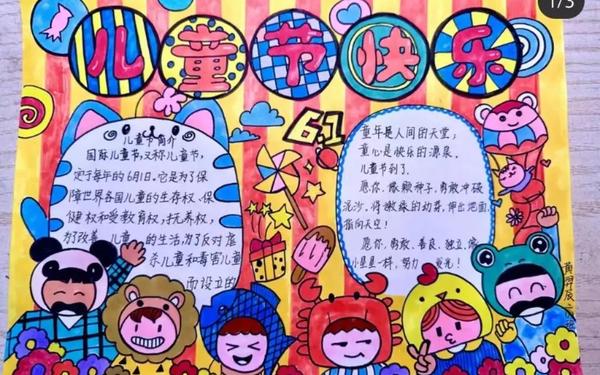 1/3
儿童节快乐
6.1
儿童节简介
国际儿童节,又称儿童节,
定于每年的6月1日。它是为了保
障世界各国儿童的生存权、保
健权和受教育权,抚养权,
为了改善儿童的生活,为了反对虐
杀儿童和毒害儿童
而设立的
童年是人间的天堂,
童心是快乐的源泉。
儿童节到了。
愿你,像颗种子,勇敢冲破
泥沙,将嫩绿的幼芽,伸出地面,
指向天空!
愿你,勇敢、善良、独立,像
小星星一样,努力发光!